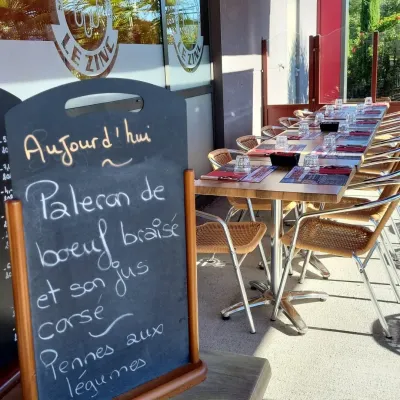 LE ZINC
LE ZINC
Aujourd'hui
Paleron de
bœuf braisé
et son jus
corsé
Pennes aux
légumes